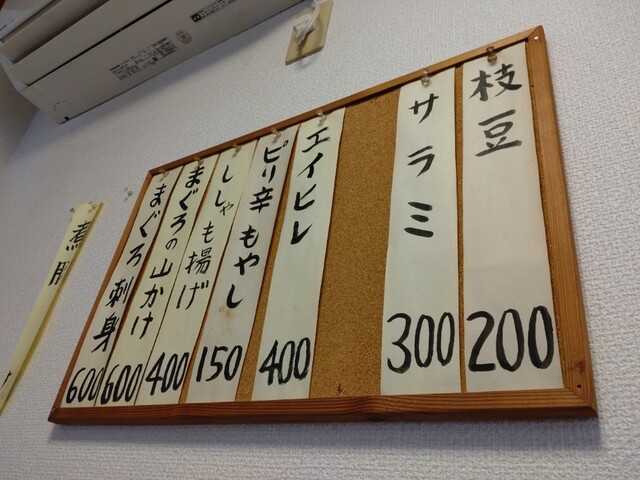 枝豆 200
サラミ 300
エイヒレ 400
ピリ辛もやし 150
ししゃも揚げ 400
まぐろの山かけ 600
まぐろ刺身 600
煮